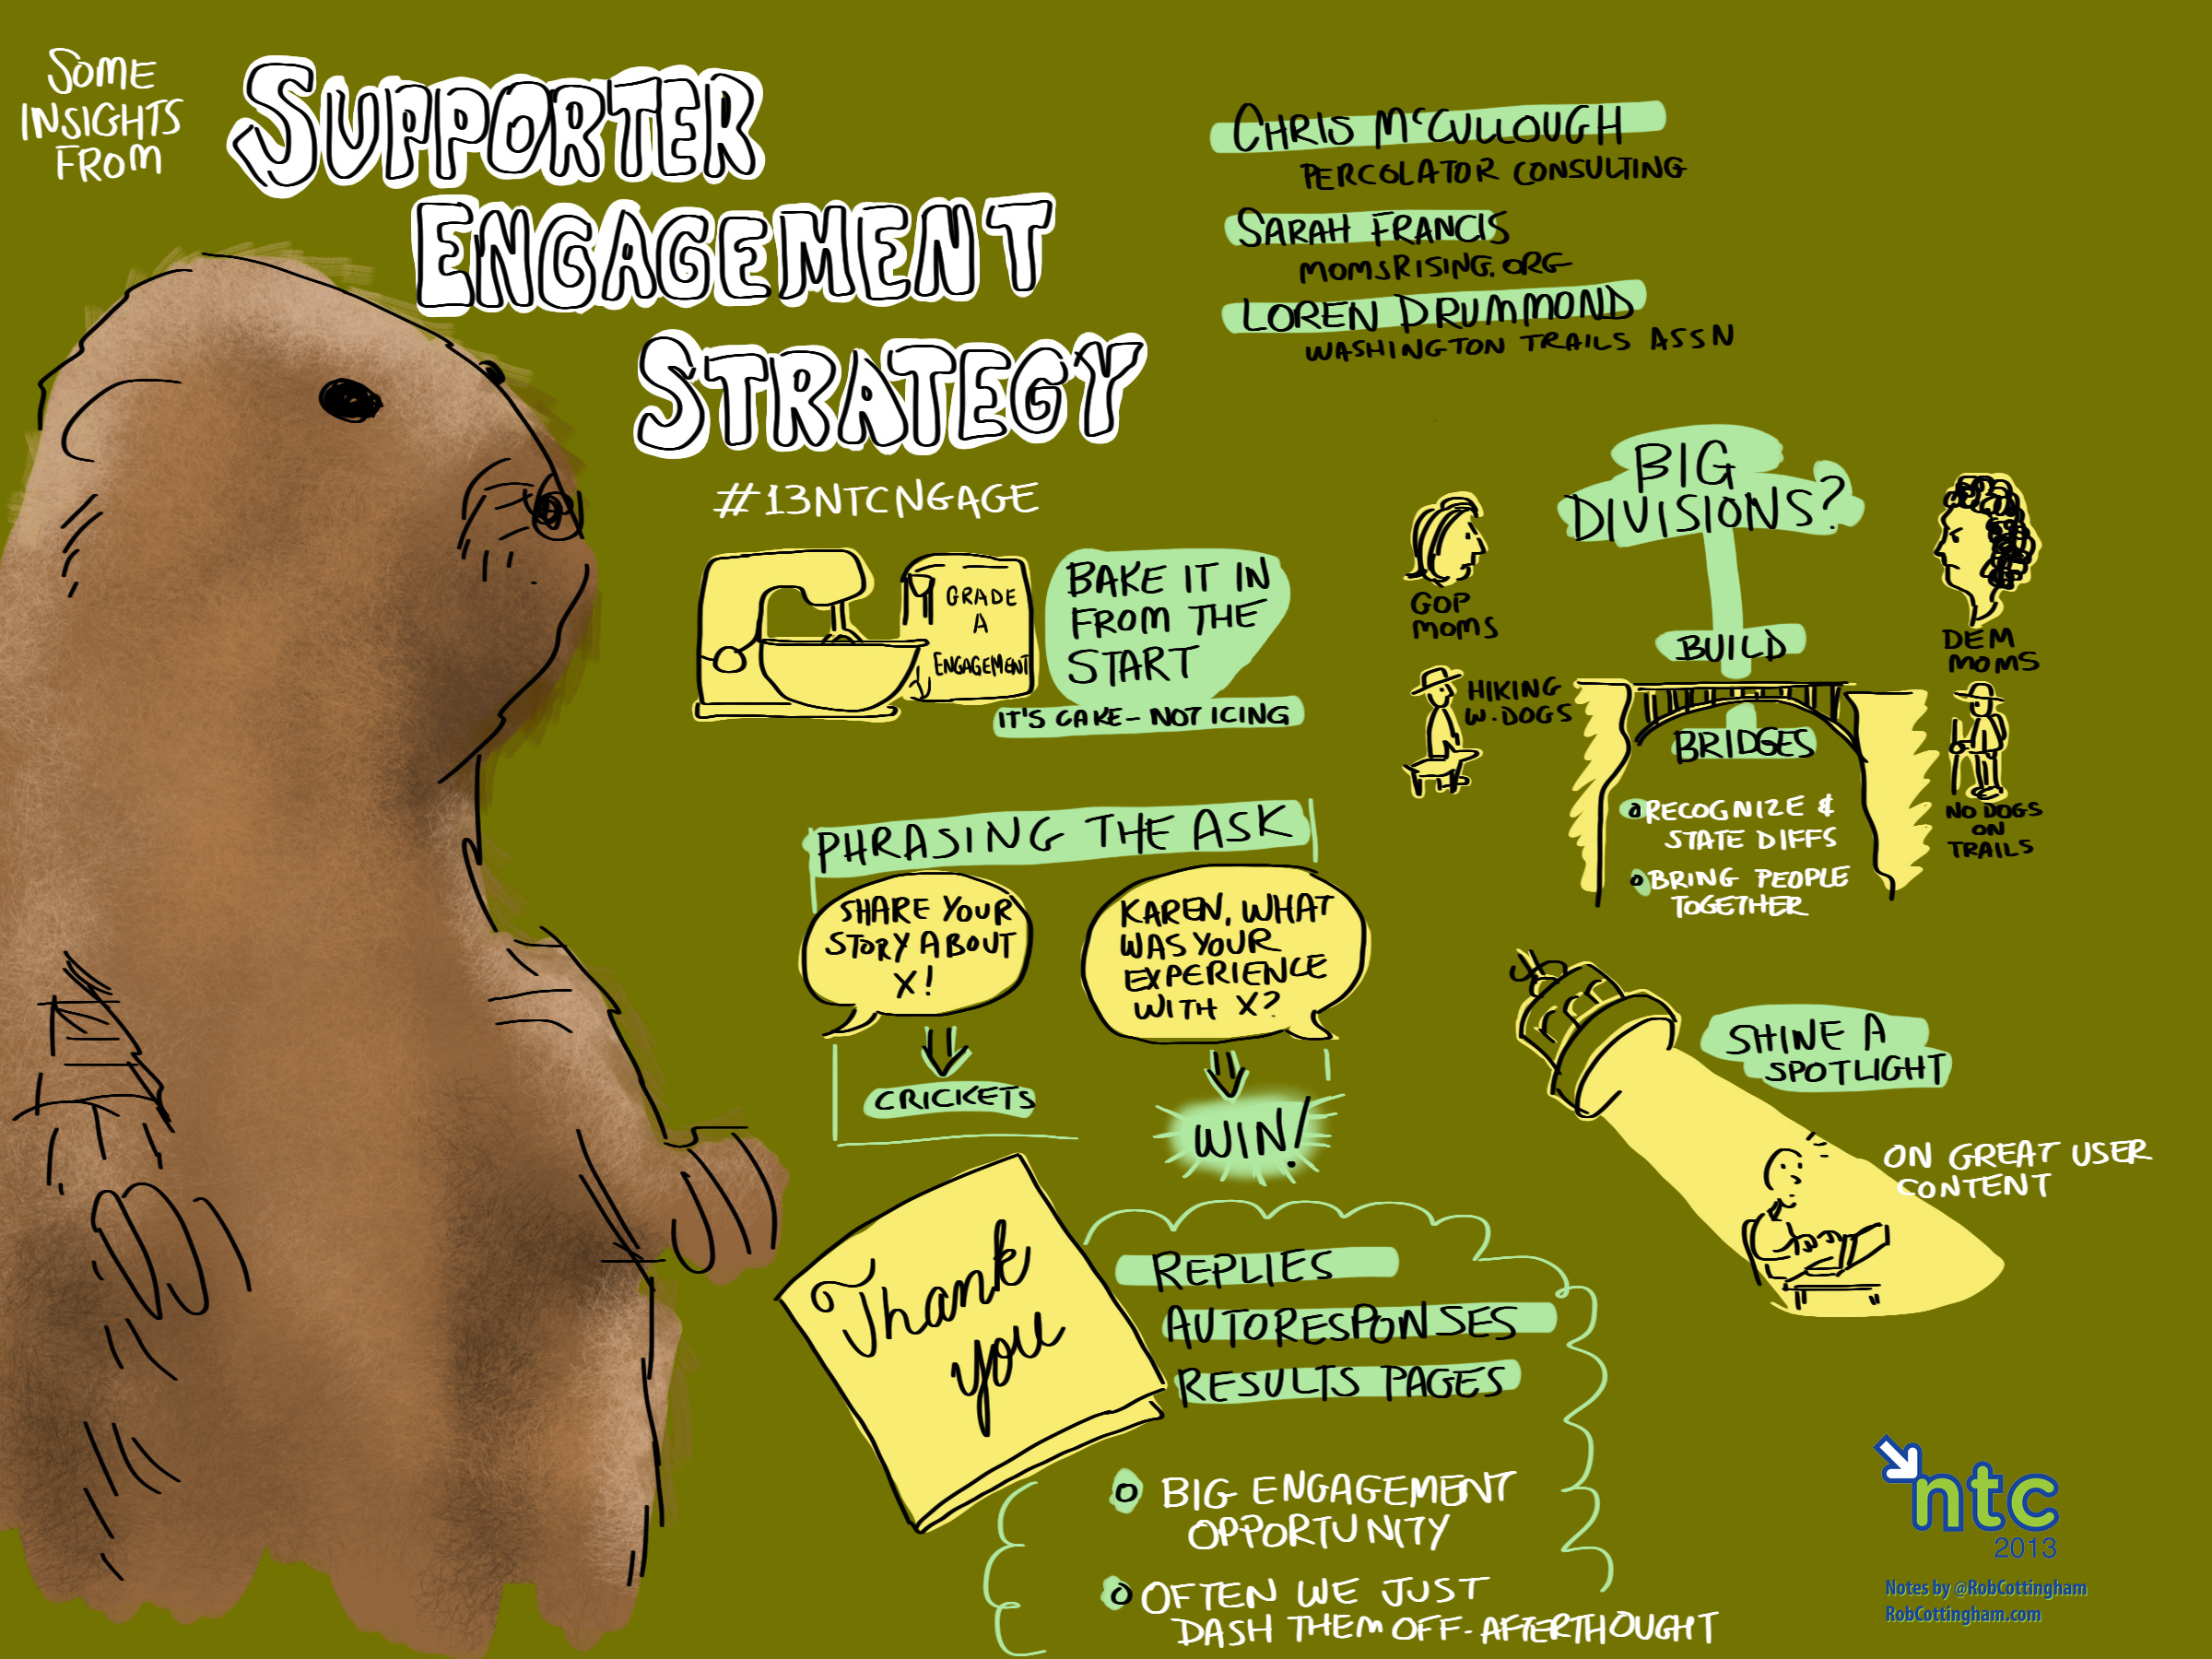 SOME
INSIGHTS
FROM
SUPPORTER
ENGAGEMENT
STRATEGY
#13NTCNGAGE
CHRIS McCULLOUGH
PERCOLATOR CONSULTING
SARAH FRANCIS
MOMSRISING.ORG
LOREN DRUMMOND
WASHINGTON TRAILS ASSN
GRADE
A
ENGAGEMENT
BAKE IT IN
FROM THE
START
IT'S CAKE - NOT ICING
BIG
DIVISIONS?
GOP
MOMS
DEM
MOMS
BUILD
BRIDGES
HIKING
W. DOGS
NO DOGS
ON
TRAILS
RECOGNIZE &
STATE DIFFS
BRING PEOPLE
TOGETHER
PHRASING THE ASK
SHARE YOUR
STORY ABOUT
X!
CRICKETS
KAREN, WHAT
WAS YOUR
EXPERIENCE
WITH X?
WIN!
SHINE A
SPOTLIGHT
ON GREAT USER
CONTENT
Thank
you
REPLIES
AUTORESPONSES
RESULTS PAGES
BIG ENGAGEMENT
OPPORTUNITY
OFTEN WE JUST
DASH THEM OFF - AFTERTHOUGHT
ntc
2013
Notes by @RobCottingham
RobCottingham.com